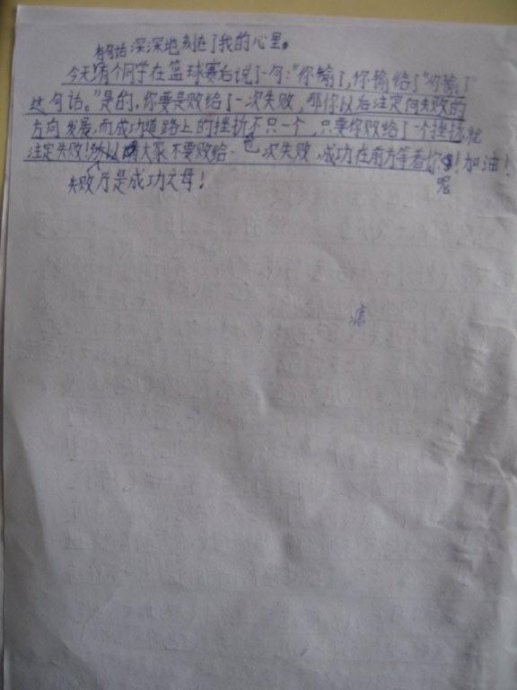 有句话深深地刻进了我的心里。
今天有个同学在篮球赛后说了一句:“你输了,你输给了“你输了”
这句话。”是的,你要是败给了一次失败,那你以后注定向失败的
方向发展,而成功道路上的挫折不只一个,只要你败给了一个挫折就
注定失败!所以大家不要败给一次失败,成功在前方等着你呢!加油!
失败乃是成功之母!